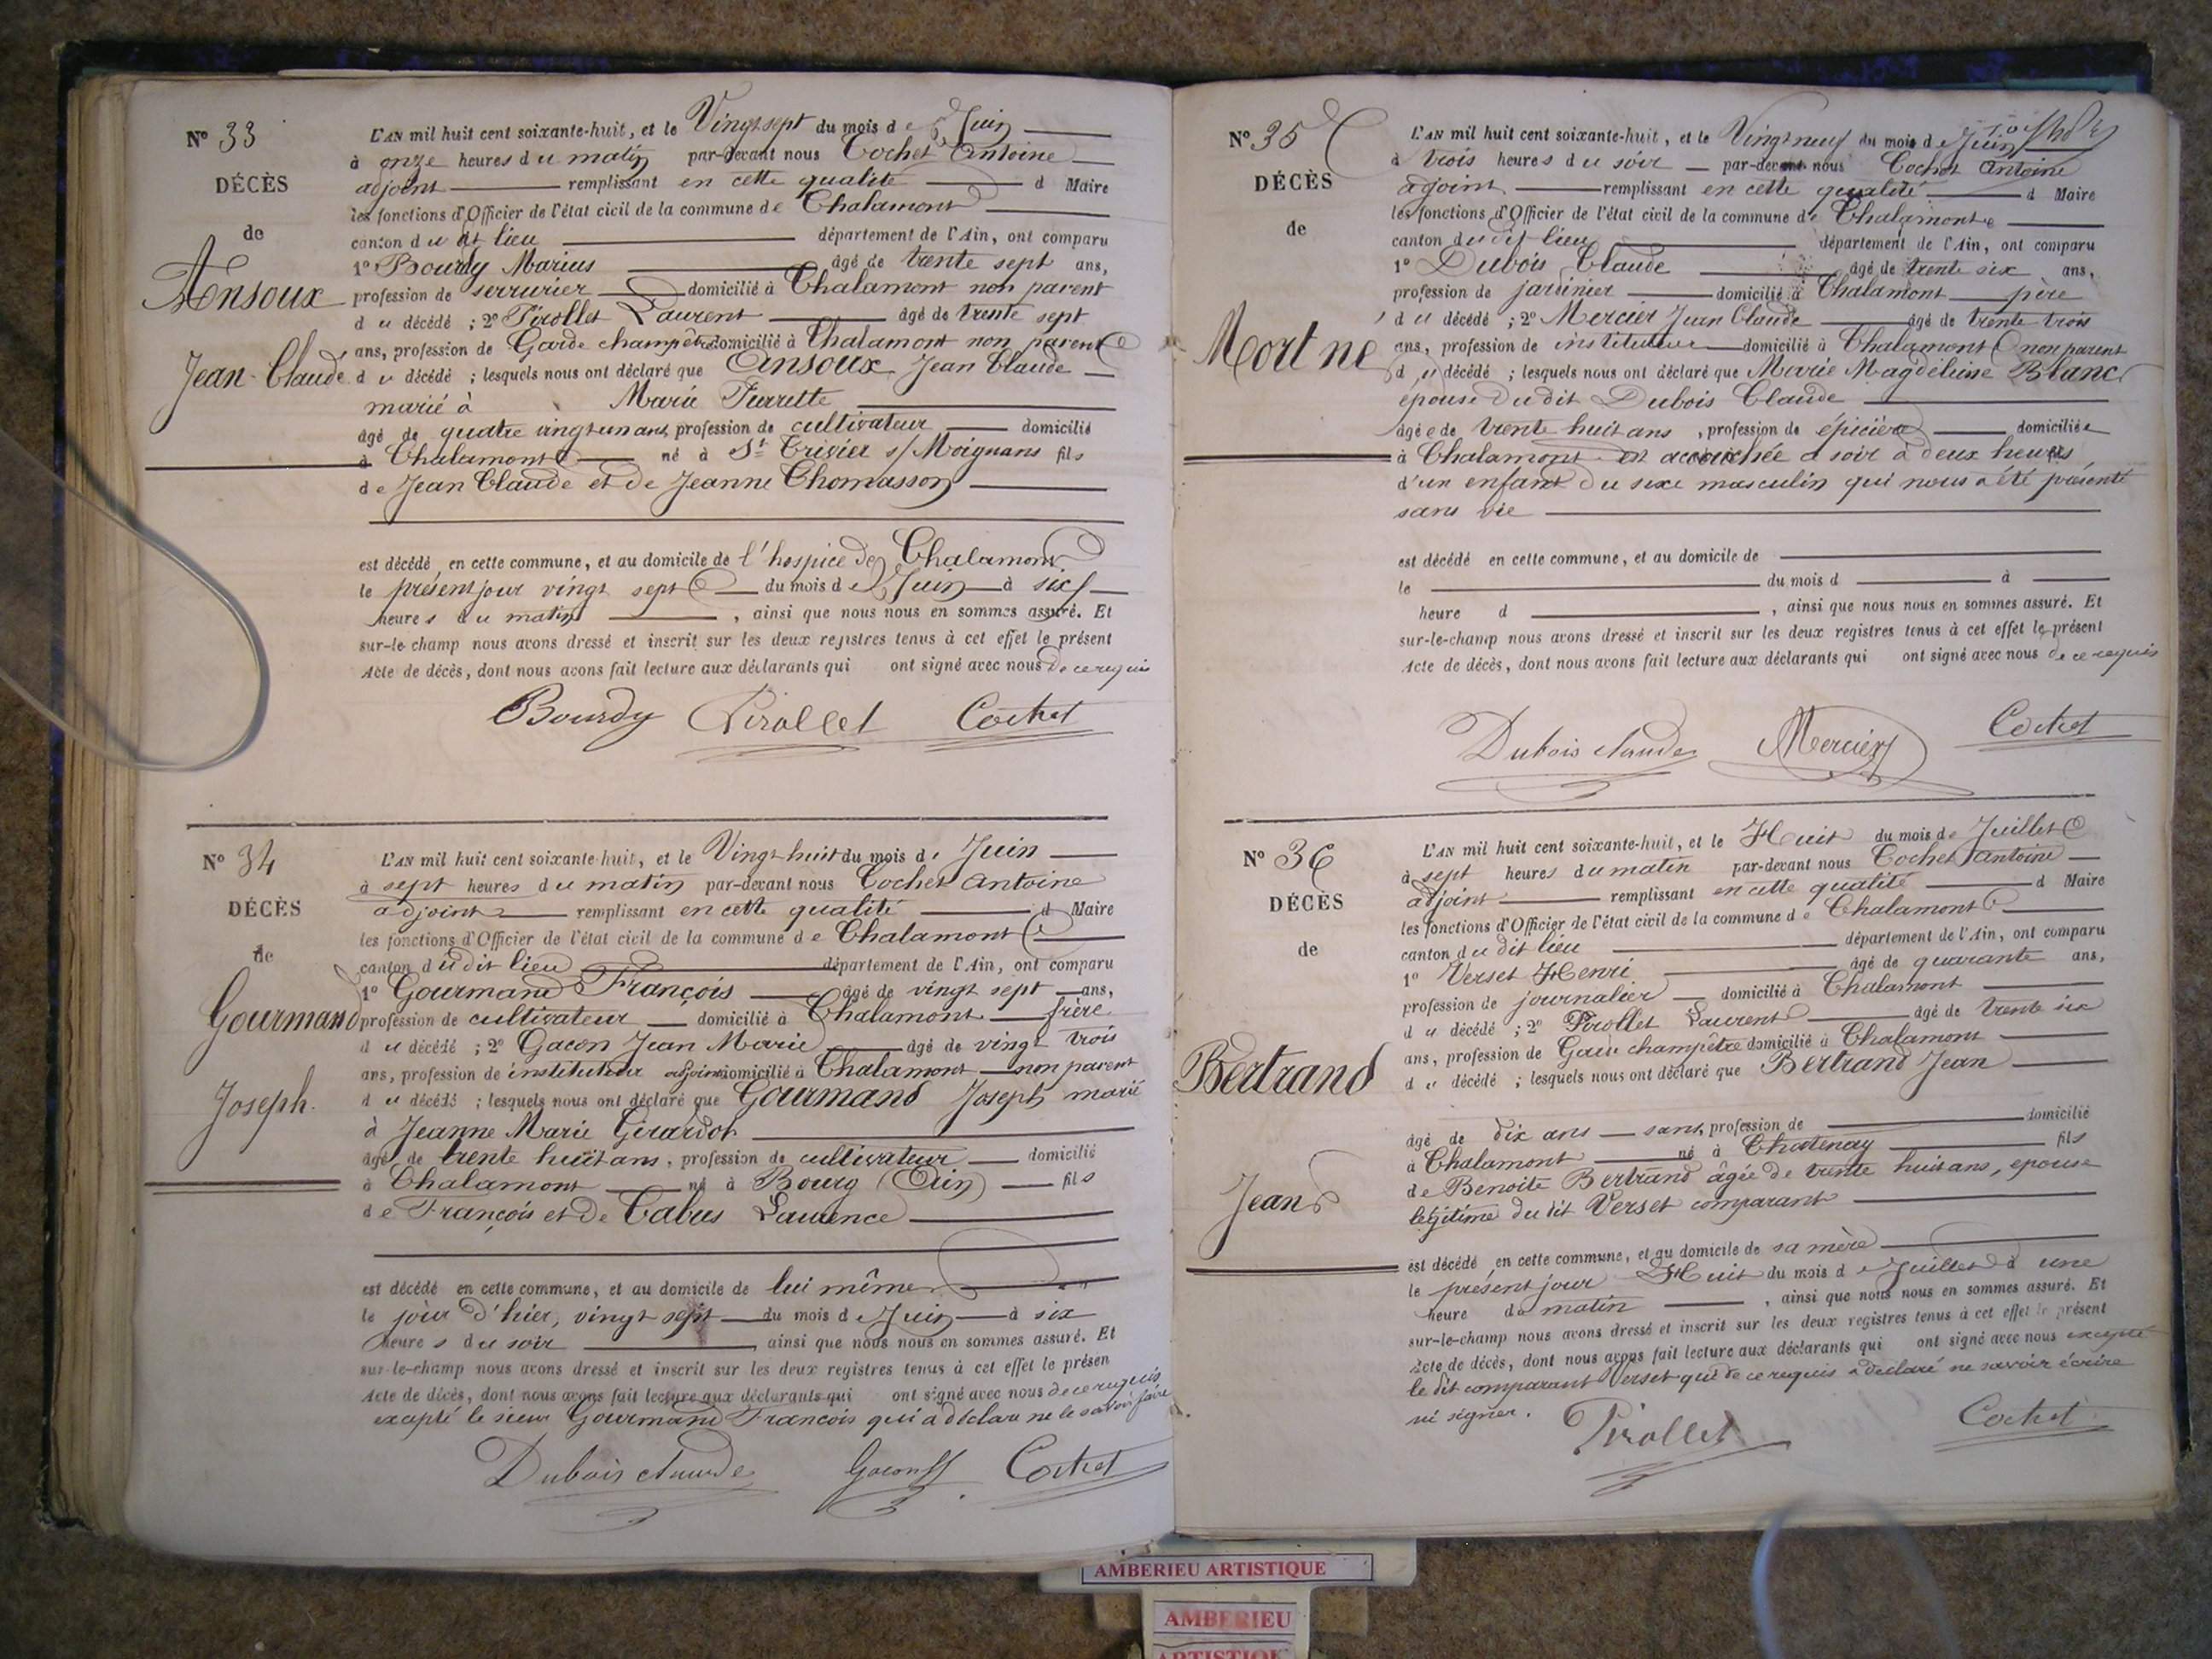 N° 33
DÉCÈS
de
Ansoux
Jean-Claude
L'AN mil huit cent soixante-huit, et le Vingt sept du mois de Juin
à onze heures du matin par-devant nous Cochet Antoine
adjoint remplissant en cette qualité d Maire
les fonctions d'Officier de l'état civil de la commune de Chalamont
canton du dit lieu département de l'Ain, ont comparu
1° Bourdy Marius âgé de trente sept ans,
profession de serrurier domicilié à Chalamont non parent
du décédé ; 2° Pirollet Laurent âgé de trente sept
ans, profession de Garde champêtre domicilié à Chalamont non parent
du décédé ; lesquels nous ont déclaré que Ansoux Jean Claude
marié à Marie Perrette
âgé de quatre vingt un ans, profession de cultivateur domicilié
à Chalamont né à St Trivier s/ Moignans fils
de Jean Claude et de Jeanne Chomasson
est décédé en cette commune, et au domicile de l'hospice de Chalamont
le présent jour vingt sept du mois de Juin à six
heures du matin , ainsi que nous nous en sommes assuré. Et
sur-le-champ nous avons dressé et inscrit sur les deux registres tenus à cet effet le présent
Acte de décès, dont nous avons fait lecture aux déclarants qui ont signé avec nous de ce requis
Bourdy Pirollet Cochet
N° 34
DÉCÈS
de
Gourmand
Joseph.
L'AN mil huit cent soixante-huit, et le Vingt huit du mois de Juin
à sept heures du matin par-devant nous Cochet Antoine
adjoint remplissant en cette qualité d Maire
les fonctions d'Officier de l'état civil de la commune de Chalamont
canton du dit lieu département de l'Ain, ont comparu
1° Gourmand François âgé de vingt sept ans,
profession de cultivateur domicilié à Chalamont frère
du décédé ; 2° Gacon Jean Marie âgé de vingt trois
ans, profession de instituteur adjoint domicilié à Chalamont non parent
du décédé ; lesquels nous ont déclaré que Gourmand Joseph marié
à Jeanne Marie Girardot
âgé de trente huit ans, profession de cultivateur domicilié
à Chalamont né à Bourg (Ain) fils
de François et de Cabus Laurence
est décédé en cette commune, et au domicile de lui même
le jour d'hier, vingt sept du mois de Juin à six
heures du soir ainsi que nous nous en sommes assuré. Et
sur-le-champ nous avons dressé et inscrit sur les deux registres tenus à cet effet le présen
Acte de décès, dont nous avons fait lecture aux déclarants qui ont signé avec nous de ce requis
excepté le sieur Gourmand François qui a déclaré ne le savoir faire
Dubois claude Gacon Cochet
N° 35
DÉCÈS
de
Mort né
L'AN mil huit cent soixante-huit, et le Vingt neuf du mois de Juin
à trois heures du soir par-devant nous Cochet Antoine
adjoint remplissant en cette qualité d Maire
les fonctions d'Officier de l'état civil de la commune de Chalamont
canton du dit lieu département de l'Ain, ont comparu
1° Dubois Claude âgé de trente six ans,
profession de jardinier domicilié à Chalamont père
du décédé ; 2° Mercier Jean Claude âgé de trente trois
ans, profession de instituteur domicilié à Chalamont non parent
du décédé ; lesquels nous ont déclaré que Marie Magdeleine Blanc
épouse du dit Dubois Claude
âgée de trente huit ans, profession de épicière domiciliée
à Chalamont est accouchée ce soir à deux heures
d'un enfant du sexe masculin qui nous a été présenté
sans vie
est décédé en cette commune, et au domicile de
le du mois d à
heure d , ainsi que nous nous en sommes assuré. Et
sur-le-champ nous avons dressé et inscrit sur les deux registres tenus à cet effet le présent
Acte de décès, dont nous avons fait lecture aux déclarants qui ont signé avec nous de ce requis
Dubois claude Mercier Cochet
N° 36
DÉCÈS
de
Bertrand
Jean
L'AN mil huit cent soixante-huit, et le Huit du mois de Juillet
à sept heures du matin par-devant nous Cochet Antoine
adjoint remplissant en cette qualité d Maire
les fonctions d'Officier de l'état civil de la commune de Chalamont
canton du dit lieu département de l'Ain, ont comparu
1° Verset Henri âgé de quarante ans,
profession de journalier domicilié à Chalamont
du décédé ; 2° Pirollet Laurent âgé de trente six
ans, profession de Garde champêtre domicilié à Chalamont
du décédé ; lesquels nous ont déclaré que Bertrand Jean
âgé de dix ans sans profession de domicilié
à Chalamont né à Chatenay fils
de Benoite Bertrand âgée de trente huit ans, épouse
légitime du dit Verset comparant
est décédé en cette commune, et au domicile de sa mère
le présent jour Huit du mois de Juillet à une
heure du matin , ainsi que nous nous en sommes assuré. Et
sur-le-champ nous avons dressé et inscrit sur les deux registres tenus à cet effet le présent
Acte de décès, dont nous avons fait lecture aux déclarants qui ont signé avec nous excepté
le dit comparant Verset qui de ce requis a déclaré ne savoir écrire
ni signer.
Pirollet Cochet
AMBERIEU ARTISTIQUE
AMBERIEU
ARTISTIQUE